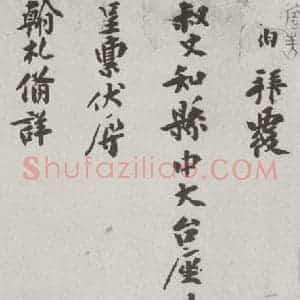 拜覆
叔丈知縣中大台座
呈稟伏辱
翰札備詳
Shufaziliao.com